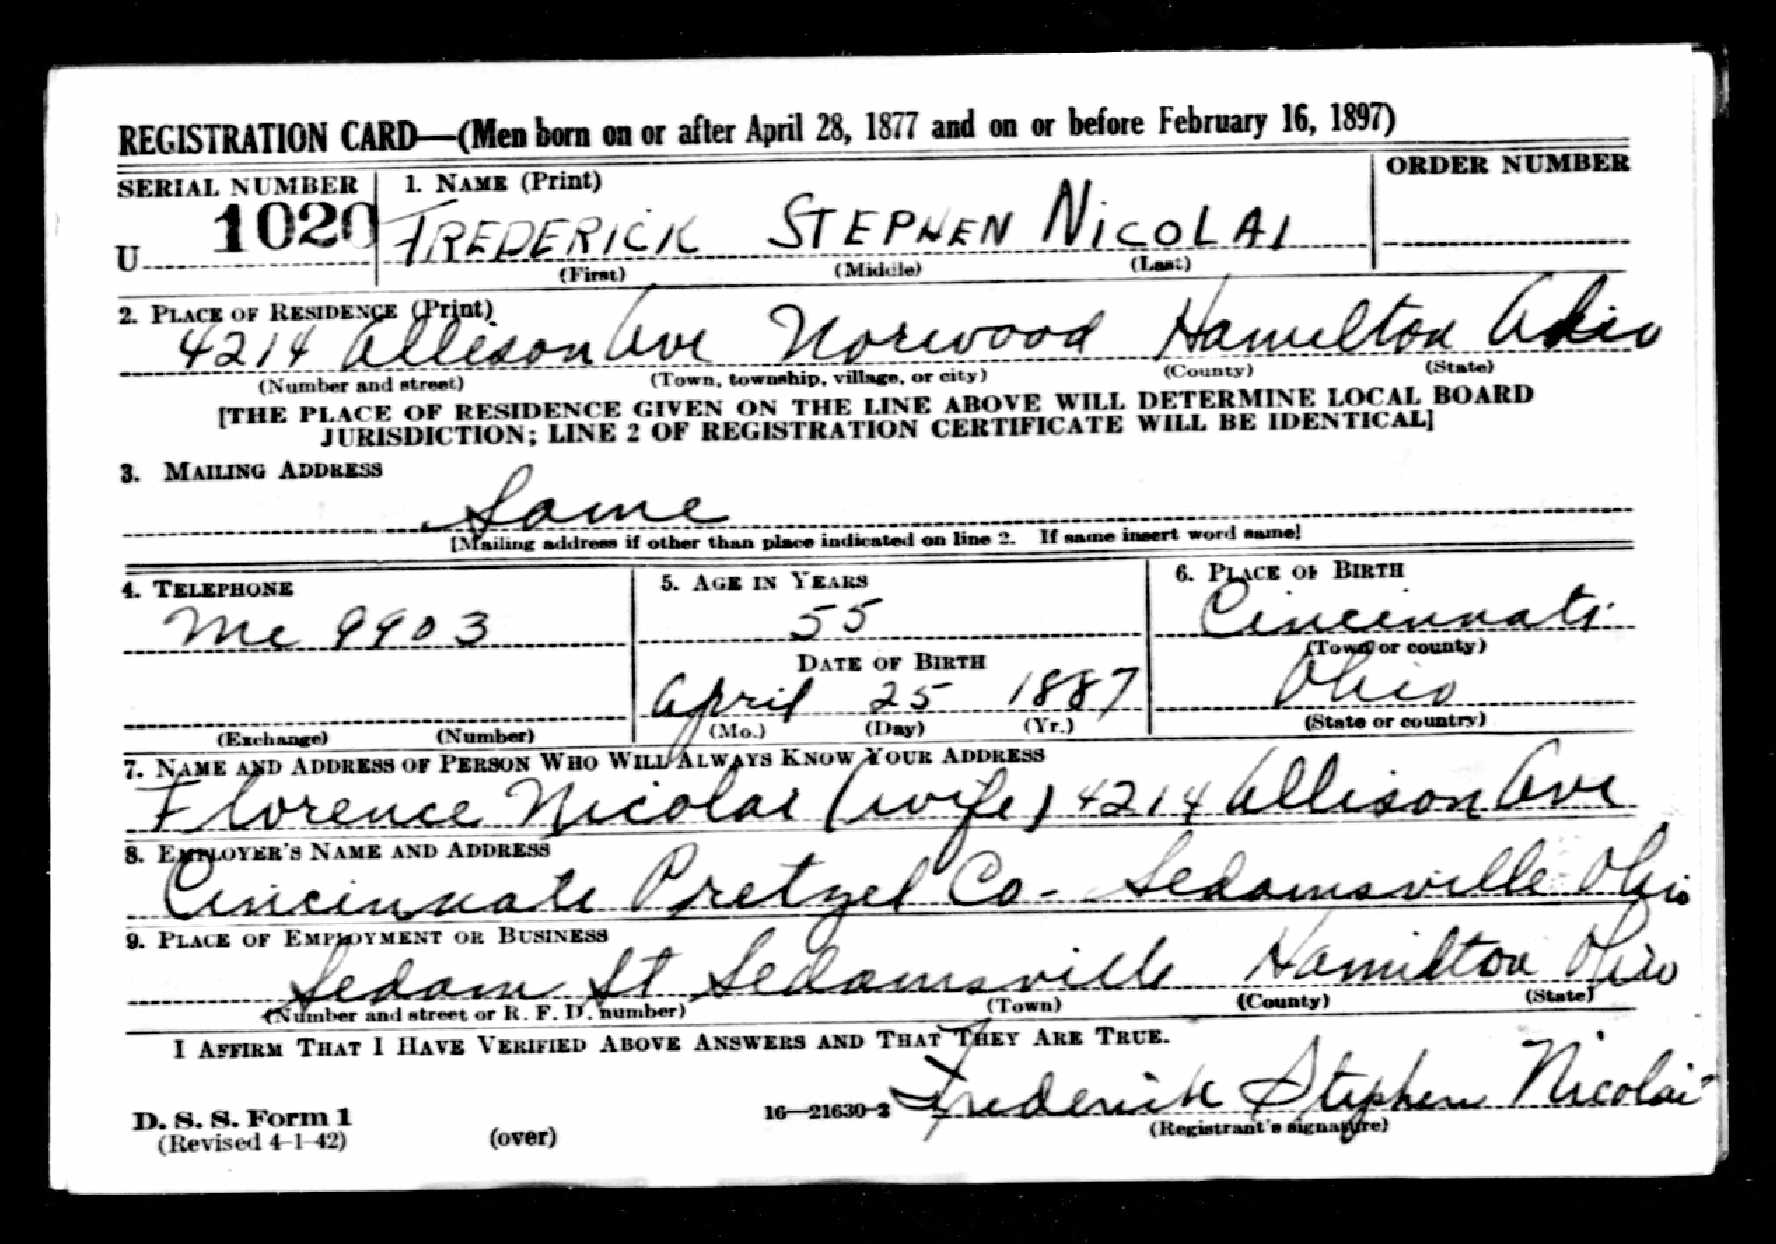 REGISTRATION CARD—(Men born on or after April 28, 1877 and on or before February 16, 1897)
SERIAL NUMBER 1. NAME (Print) ORDER NUMBER
U 1020 FREDERICK STEPHEN NICOLAI
(First) (Middle) (Last)
2. PLACE OF RESIDENCE (Print)
4214 Allison Ave Norwood Hamilton Ohio
(Number and street) (Town, township, village, or city) (County) (State)
[THE PLACE OF RESIDENCE GIVEN ON THE LINE ABOVE WILL DETERMINE LOCAL BOARD
JURISDICTION; LINE 2 OF REGISTRATION CERTIFICATE WILL BE IDENTICAL]
3. MAILING ADDRESS
Same
[Mailing address if other than place indicated on line 2. If same insert word same]
4. TELEPHONE 5. AGE IN YEARS 6. PLACE OF BIRTH
Me 9903 55 Cincinnati
DATE OF BIRTH (Town or county)
April 25 1887 Ohio
(Exchange) (Number) (Mo.) (Day) (Yr.) (State or country)
7. NAME AND ADDRESS OF PERSON WHO WILL ALWAYS KNOW YOUR ADDRESS
Florence Nicolai (wife) 4214 Allison Ave
8. EMPLOYER'S NAME AND ADDRESS
Cincinnati Pretzel Co - Sedamsville Ohio
9. PLACE OF EMPLOYMENT OR BUSINESS
Sedam St Sedamsville Hamilton Ohio
(Number and street or R. F. D. number) (Town) (County) (State)
I AFFIRM THAT I HAVE VERIFIED ABOVE ANSWERS AND THAT THEY ARE TRUE.
Frederick Stephen Nicolai
D. S. S. Form 1 16—21630-2 (Registrant's signature)
(Revised 4-1-42) (over)